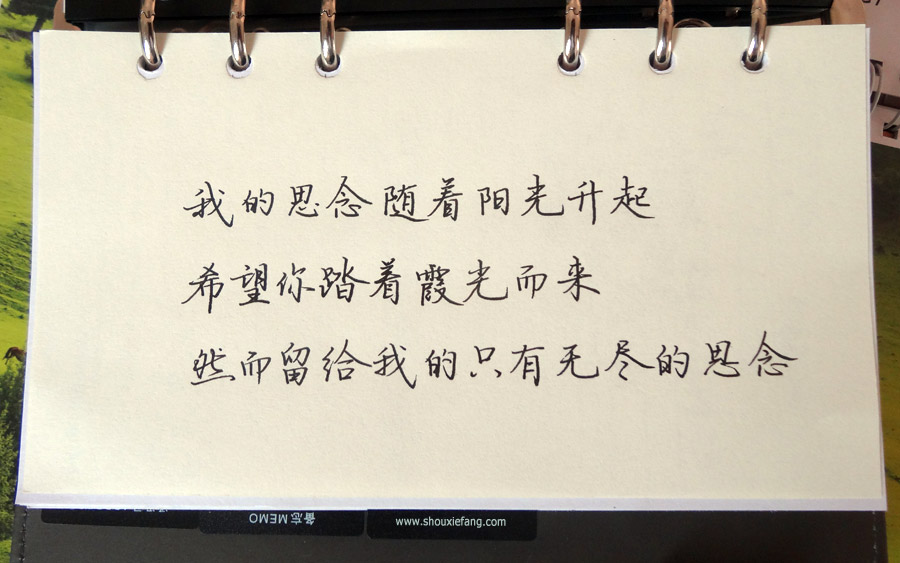 我的思念随着阳光升起
希望你踏着霞光而来
然而留给我的只有无尽的思念
备忘 MEMO
www.shouxiefang.com